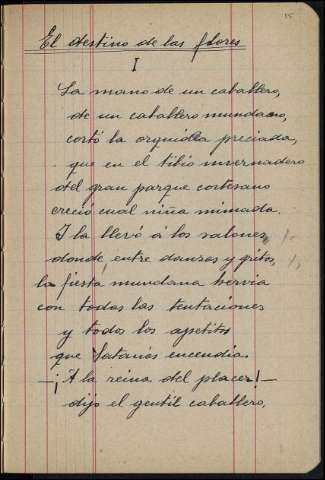 15
El destino de las flores
I
La mano de un caballero,
de un caballero mundano,
cortó la orquídea preciada,
que en el tibio invernadero
del gran parque cortesano
creció cual niña mimada.
I la llevó á los salones
donde, entre danzas y gritos,
la fiesta mundana hervia
con todas las tentaciones
y todos los apetitos
que Satanás encendia.
—¡A la reina del placer!—
dijo el gentil caballero,